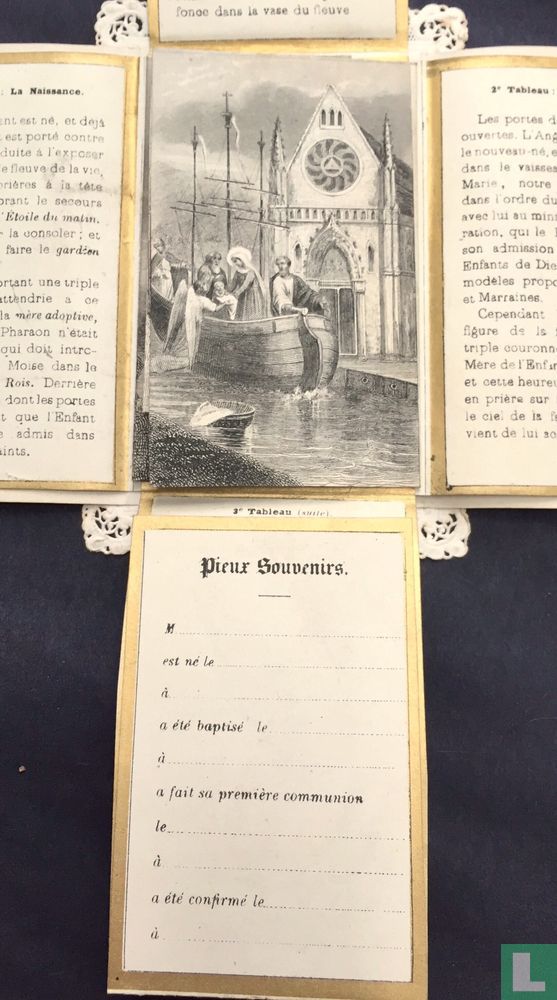 fonce dans la vase du fleuve
: La Naissance.
ant est né, et déjà
est porté contre
duite à l'exposer
e fleuve de la vie,
prières à la tête
orant le secours
l'Étoile du matin.
r la consoler; et
faire le gardien
ortant une triple
attendrie a ce
la mère adoptive,
Pharaon n'était
qui doit intro-
Moise dans le
Rois. Derrière
dont les portes
t que l'Enfant
e admis dans
aints.
2e Tableau :
Les portes d
ouvertes. L'Ang
le nouveau-né, e
dans le vaisse
Marie, notre
dans l'ordre du
avec lui au mini
ration, qui le l
son admission
Enfants de Die
modèles propo
et Marraines.
Cependant
figure de la
triple couronn
Mère de l'Enfan
et cette heureu
en prière sur
le ciel de la fa
vient de lui ac
3e Tableau (suite).
Pieux Souvenirs.
M
est né le
à
a été baptisé le
à
a fait sa première communion
le
à
a été confirmé le
à
L